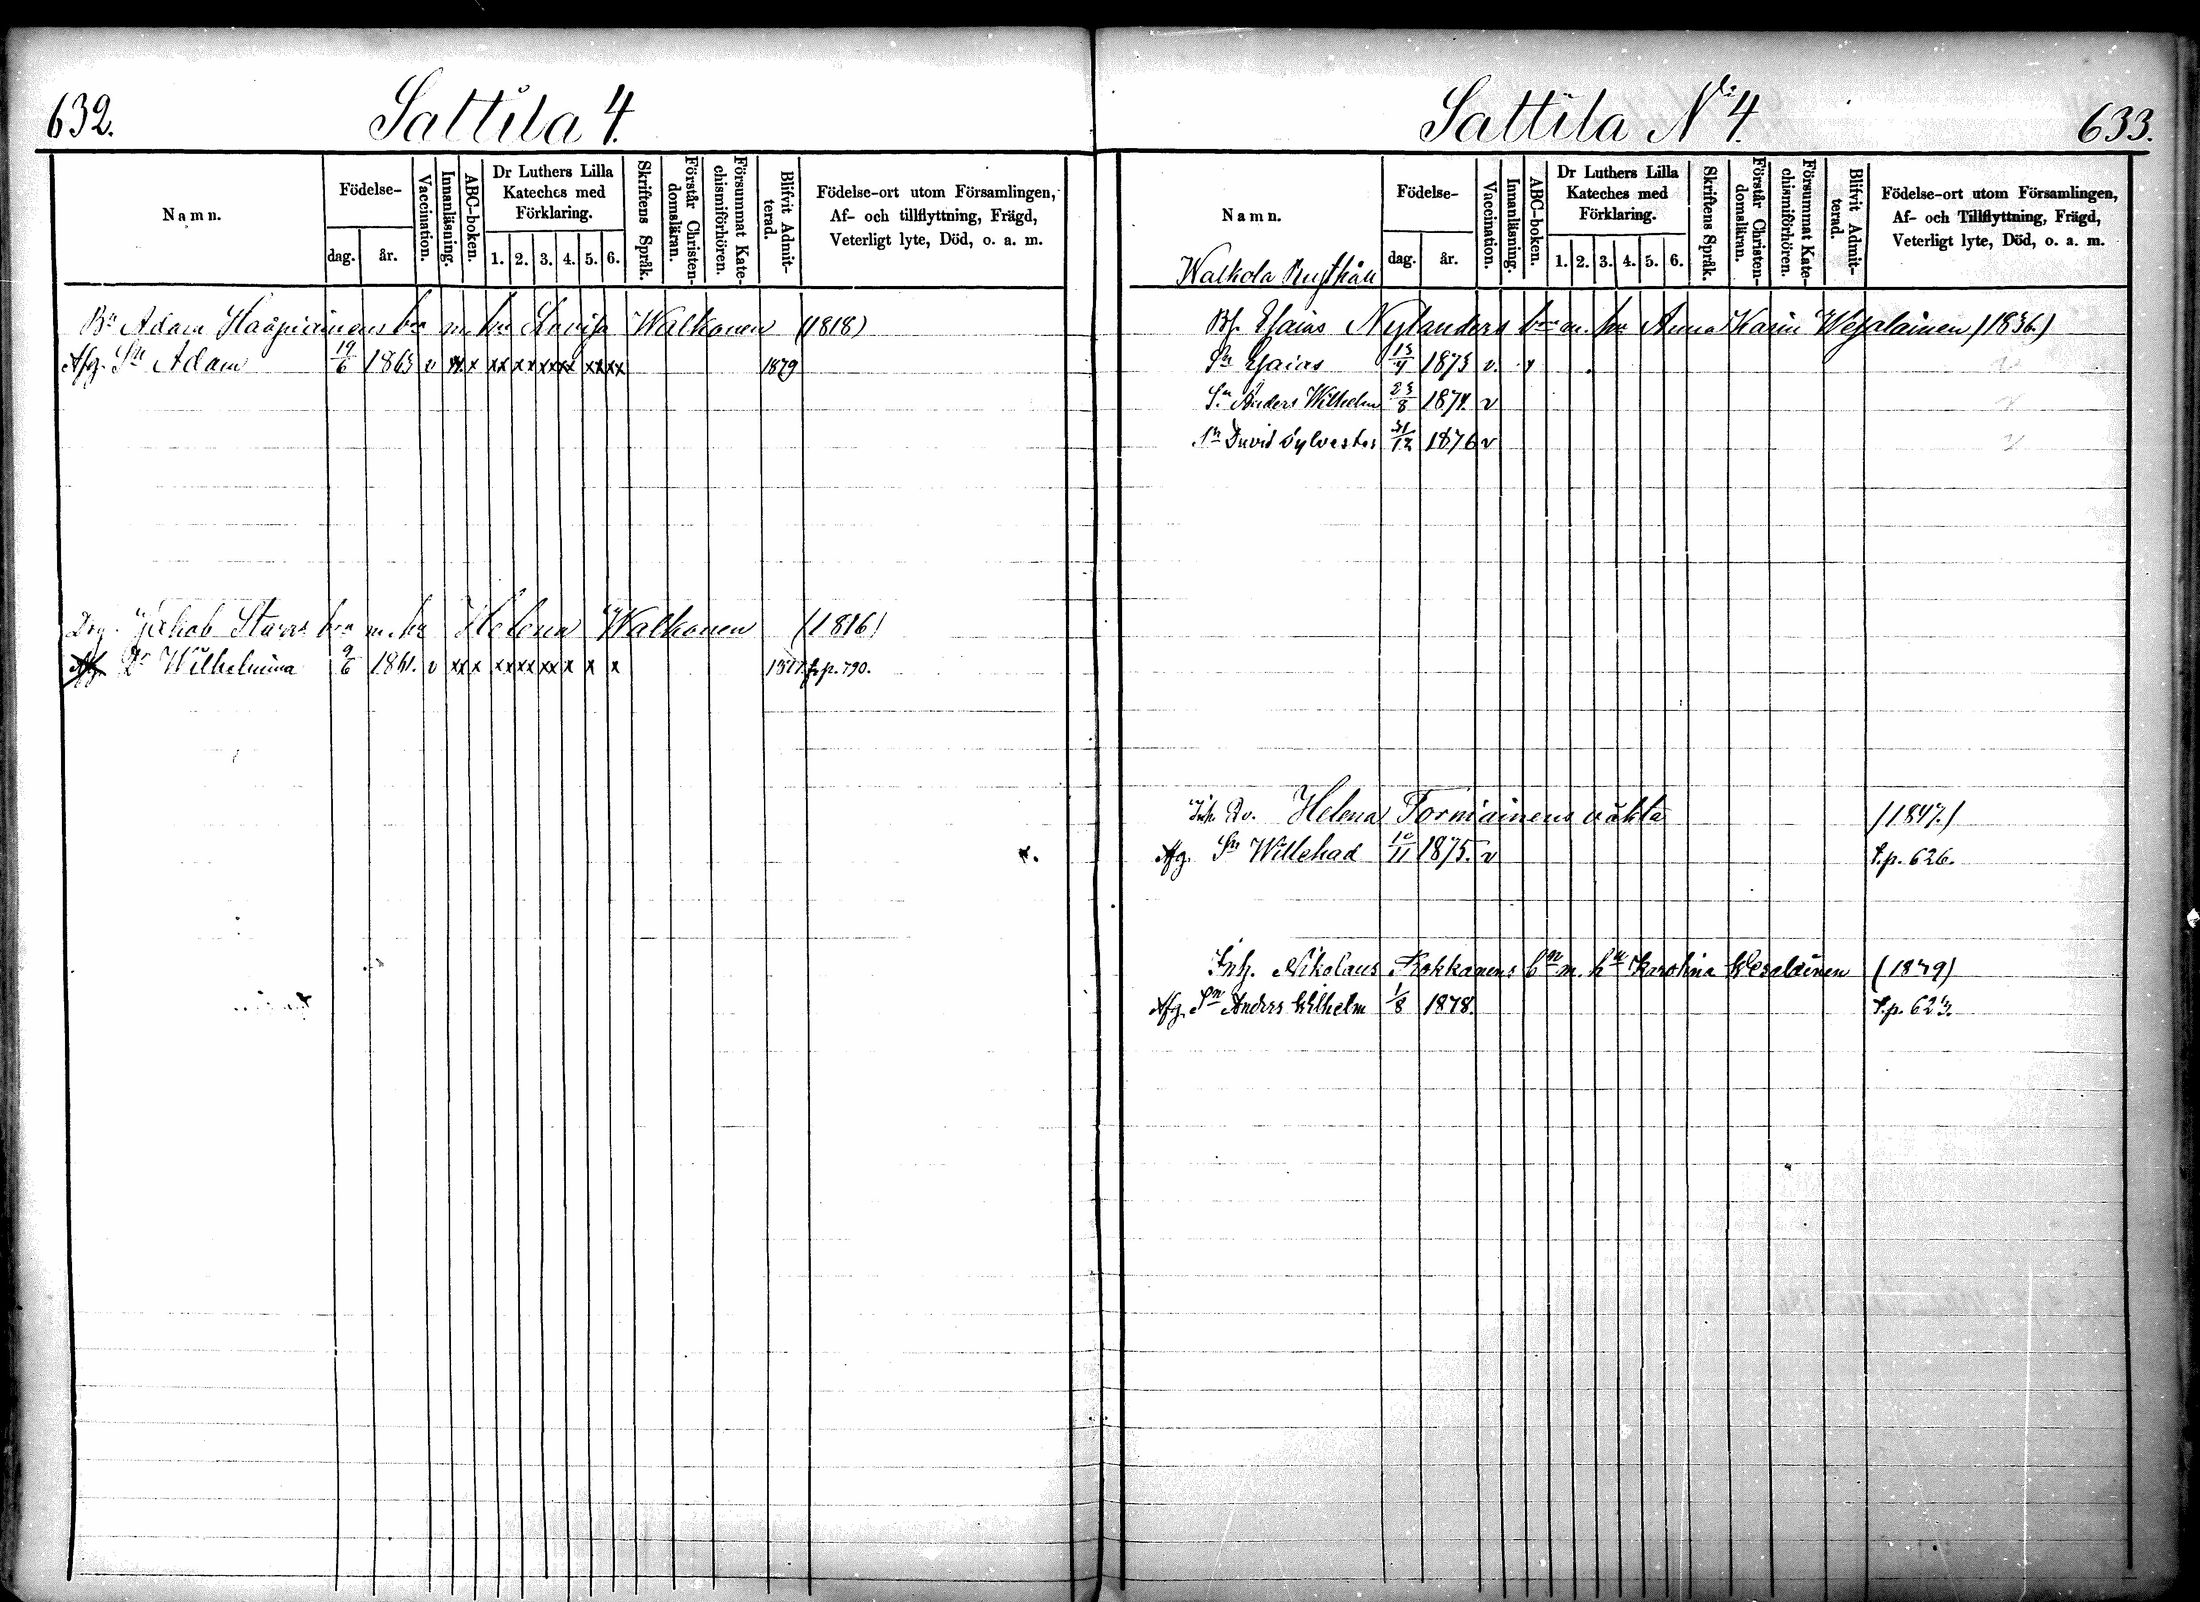 632.
Sattila 4.
Namn.
Födelse-
dag.
år.
Vaccination.
Innanläsning.
ABC-boken.
Dr Luthers Lilla
Kateches med
Förklaring.
1. 2. 3. 4. 5. 6.
Skriftens Språk.
Förstår Christen-
domsläran.
Försummat Kate-
chismiförhören.
Blifvit Admit-
terad.
Födelse-ort utom Församlingen,
Af- och tillflyttning, Frägd,
Veterligt lyte, Död, o. a. m.
Adam Haapiainens bn m. hu Lovisa Walkonen (1818)
Afg. Sn Adam 19/6 1863 v xx x xx xx xx xx xx xx 1879
Jakob Starcs bn m. hu Helena Walkonen (1816)
Afg. Dr Wilhelmina 9/6 1861. v xx x xx xx xx x x x p. 790.
Sattila No 4.
633.
Namn.
Walkola Rusthåll
Födelse-
dag.
år.
Vaccination.
Innanläsning.
ABC-boken.
Dr Luthers Lilla
Kateches med
Förklaring.
1. 2. 3. 4. 5. 6.
Skriftens Språk.
Förstår Christen-
domsläran.
Försummat Kate-
chismiförhören.
Blifvit Admit-
terad.
Födelse-ort utom Församlingen,
Af- och Tillflyttning, Frägd,
Veterligt lyte, Död, o. a. m.
Esaias Nylanders bn m. hu Anna Karin Wesalainen (1836.)
Sn Esaias 13/4 1873 v.
Sn Anders Wilhelm 23/8 1874. v
Sn David Sylvester 31/12 1876 v
Inh. Helena Tormiainens oäkta (1847.)
Afg. Sn Willehad 10/11 1875. v f.p. 626.
Inh. Nikolaus Kokkonens bn m. hu Karolina Wesalainen (1849)
Afg. Sn Anders Wilhelm 1/8 1878. f.p. 623.